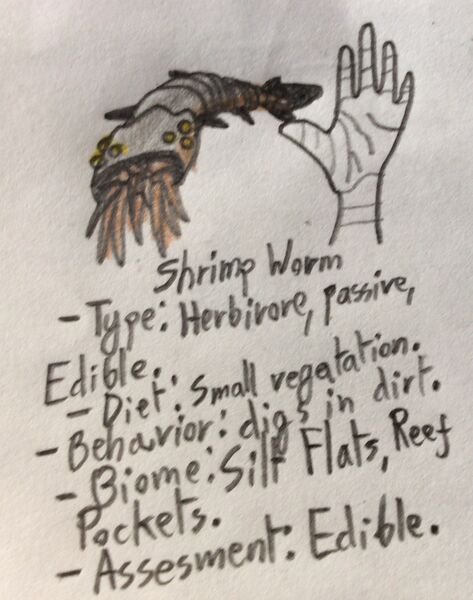 Shrimp Worm
- Type: Herbivore, passive,
Edible.
- Diet: Small vegatation.
- Behavior: digs in dirt.
- Biome: Silt Flats, Reef
Pockets.
- Assesment: Edible.